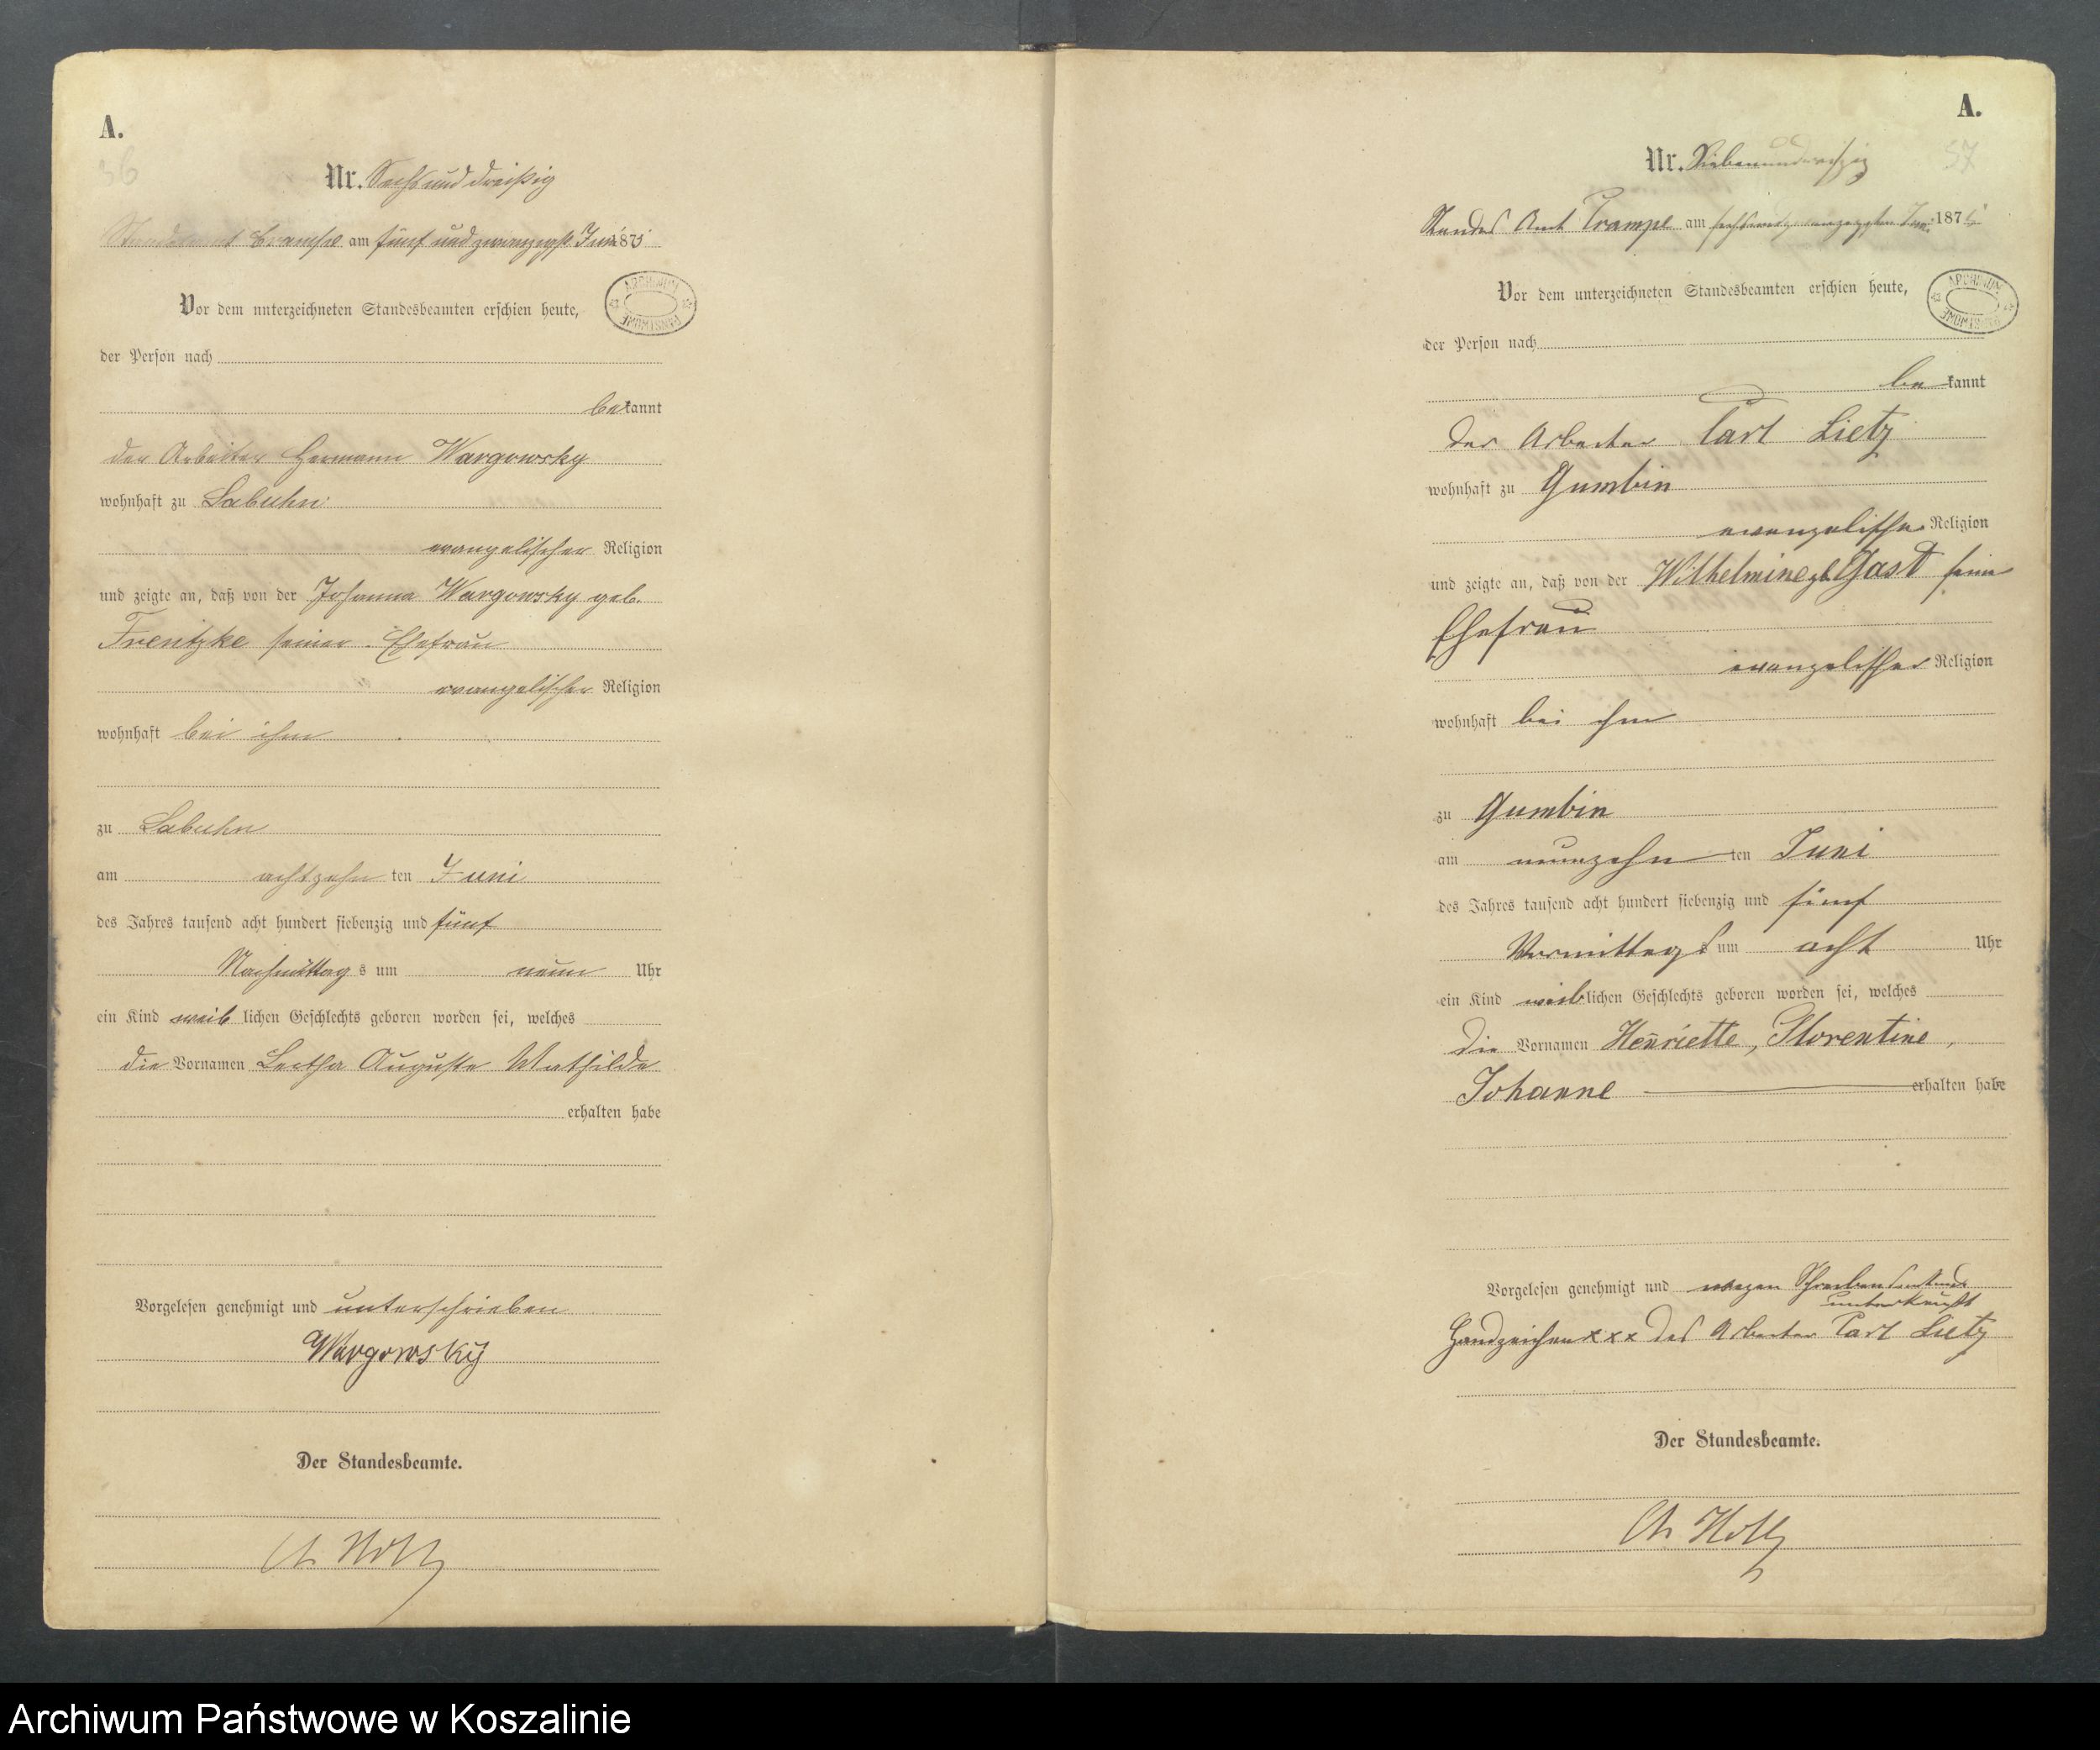 A.
36
Nr. Sechs und dreißig
Standesamt Trampe am fünf und zwanzigst. Juni 1875
Vor dem unterzeichneten Standesbeamten erschien heute,
ARCHIWUM PAŃSTWOWE
der Person nach
bekannt
der Arbeiter Hermann Wargowsky
wohnhaft zu Labuhn
evangelischer Religion
und zeigte an, daß von der Johanna Wargowsky geb.
Frentzke seiner Ehefrau
evangelischer Religion
wohnhaft bei ihm
zu Labuhn
am achtzehn ten Juni
des Jahres tausend acht hundert siebenzig und fünf
Nachmittag s um neun Uhr
ein Kind weib lichen Geschlechts geboren worden sei, welches
die Vornamen Auguste Mathilde
erhalten habe
Vorgelesen genehmigt und unterschrieben
Wargowsky
Der Standesbeamte.
A.
37
Nr. Siebenunddreißig
Standes Amt Trampe am sechsundzwanzigsten Juni 1875
Vor dem unterzeichneten Standesbeamten erschien heute,
ARCHIWUM PAŃSTWOWE
der Person nach
be kannt
der Arbeiter Carl Lietz
wohnhaft zu Gumbin
evangelischer Religion
und zeigte an, daß von der Wilhelmine geb. Gast seine
Ehefrau
evangelischer Religion
wohnhaft bei ihm
zu Gumbin
am neunzehn ten Juni
des Jahres tausend acht hundert siebenzig und fünf
Vormittags um acht Uhr
ein Kind weiblichen Geschlechts geboren worden sei, welches
die Vornamen Henriette, Florentine,
Johanne erhalten habe
Vorgelesen genehmigt und wegen Schreibens
unterkreuzt
Handzeichen x x x des Arbeiter Carl Lietz
Der Standesbeamte.
Archiwum Państwowe w Koszalinie